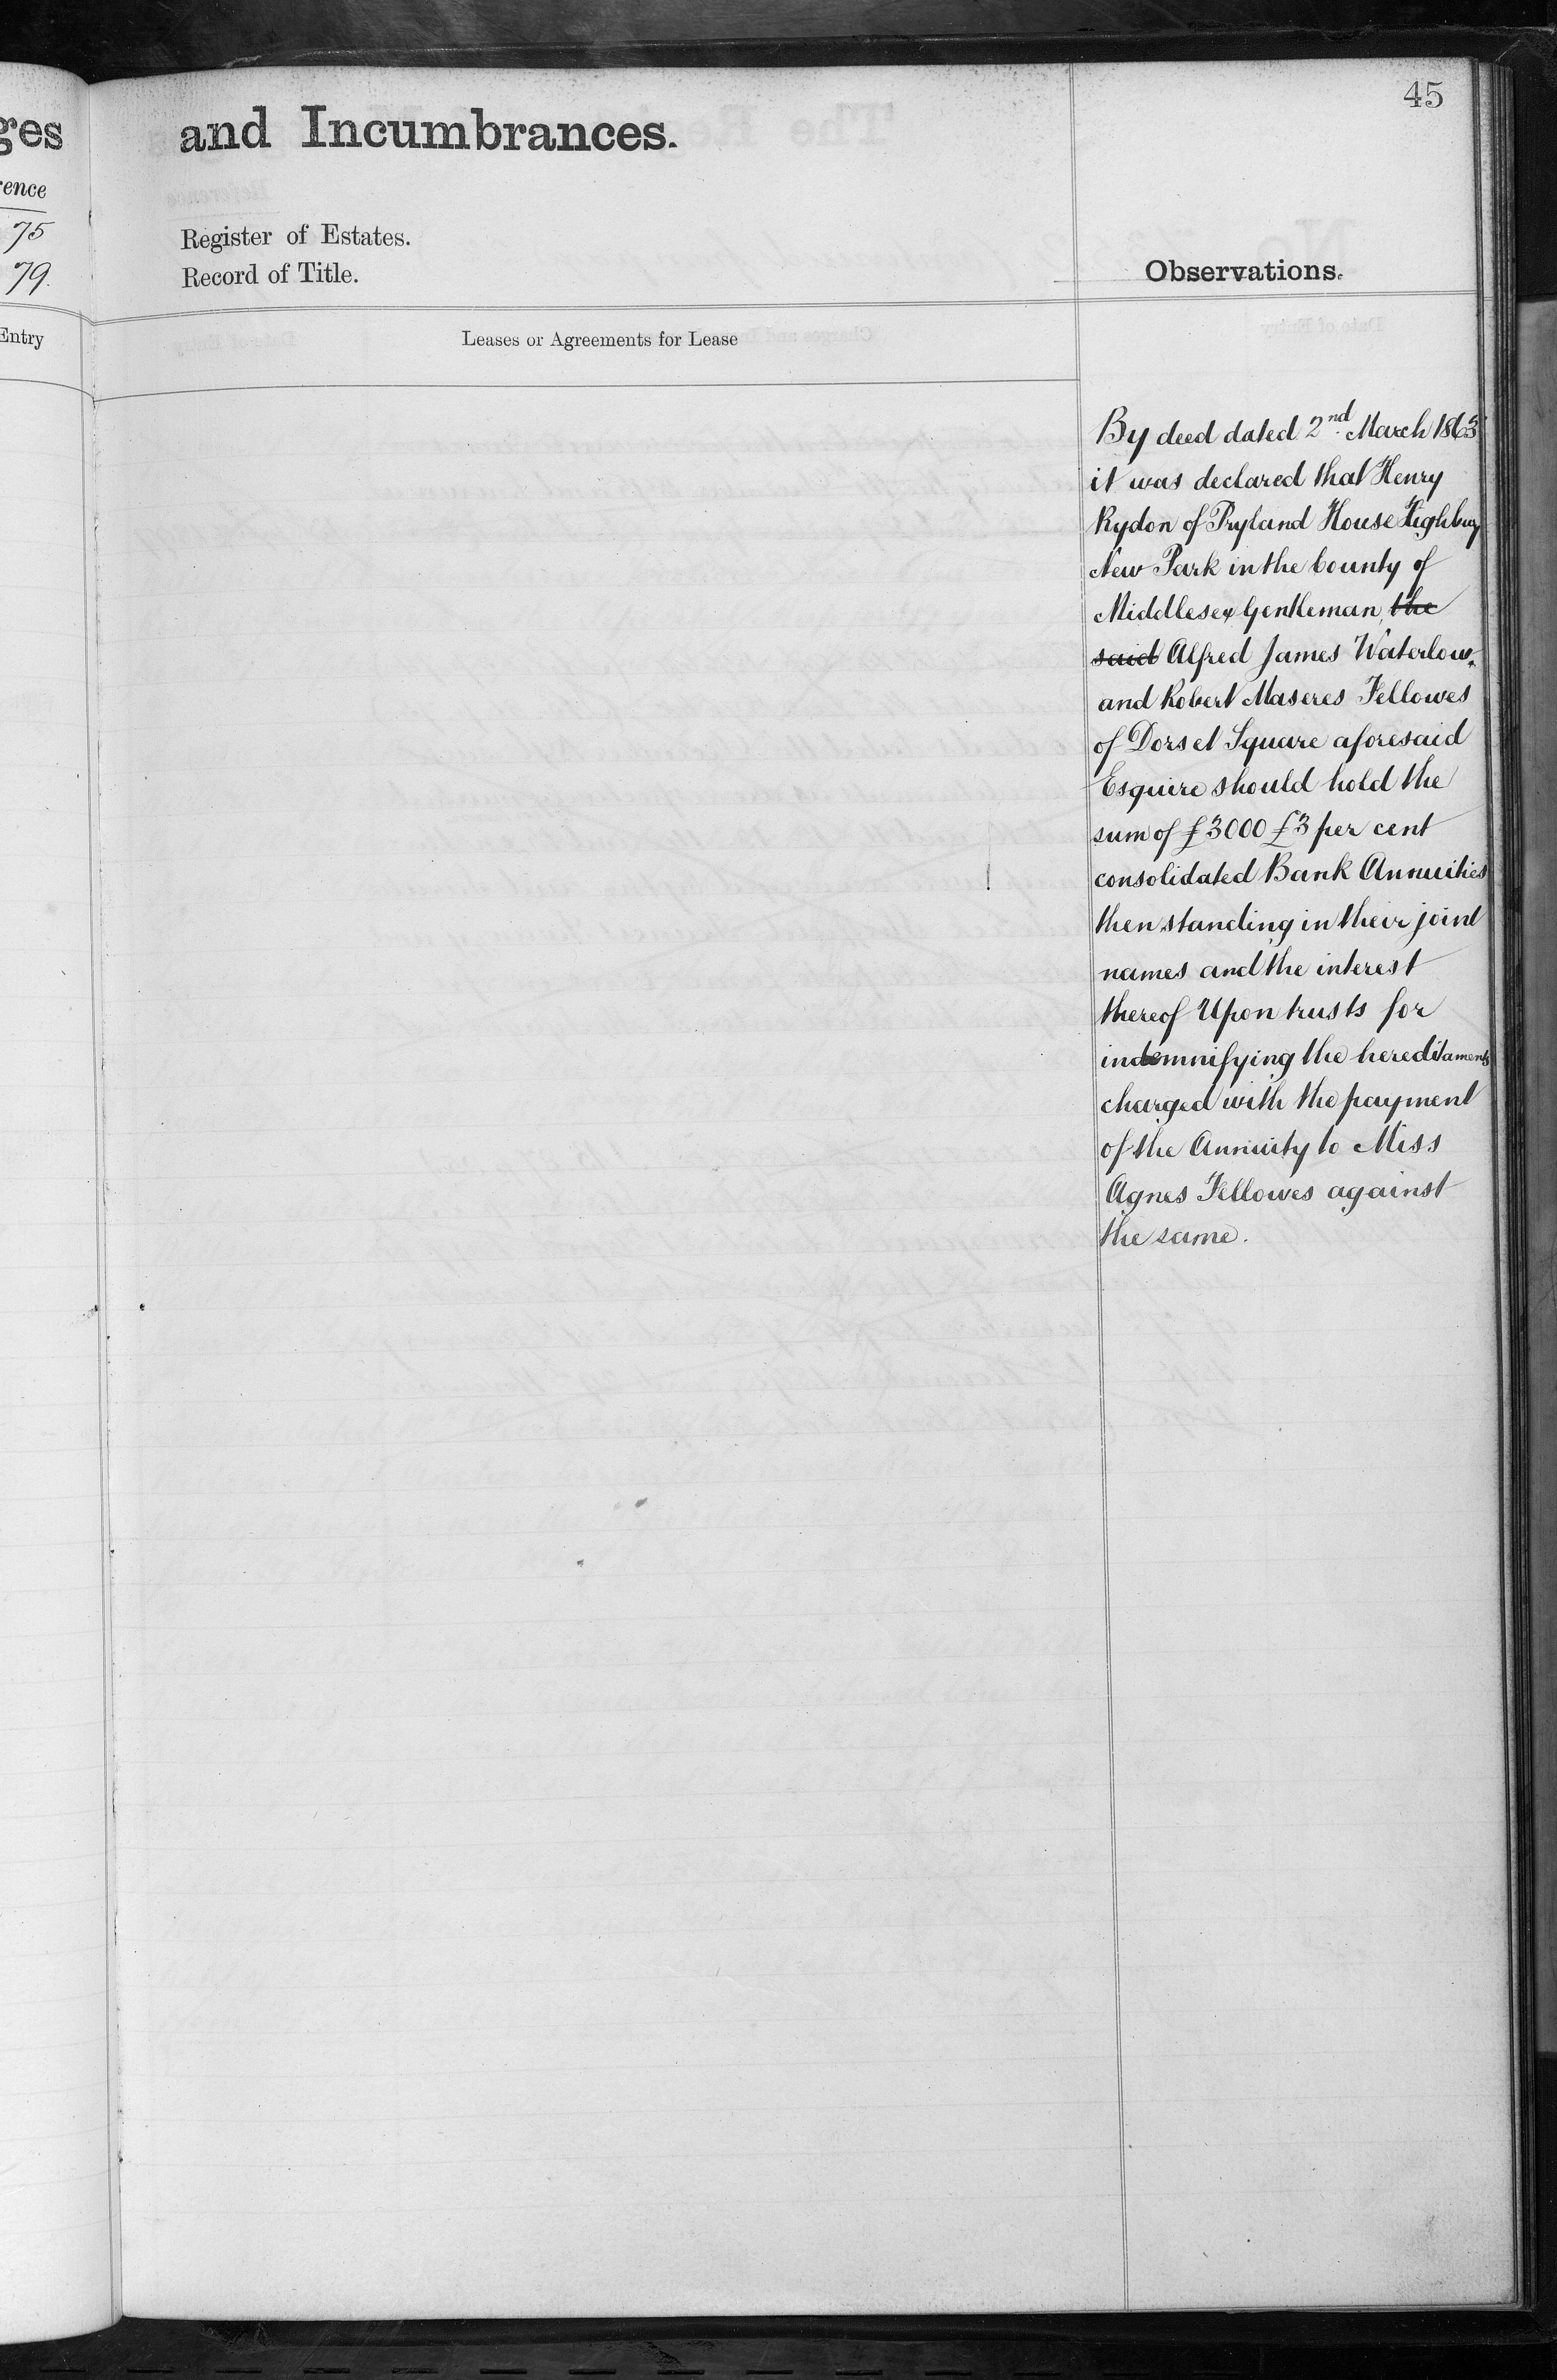 45
ges
and Incumbrances.
rence
75
79.
Register of Estates.
Record of Title.
Observations.
Entry
Leases or Agreements for Lease
By deed dated 2nd March 1863
it was declared that Henry
Rydon of Pryland House Highbury
New Park in the County of
Middlesex Gentleman, the
said Alfred James Waterlow
and Robert Maseres Fellowes
of Dorset Square aforesaid
Esquire should hold the
sum of £3000 £3 per cent
consolidated Bank Annuities
then standing in their joint
names and the interest
thereof Upon trusts for
indemnifying the hereditaments
charged with the payment
of the Annuity to Miss
Agnes Fellowes against
the same.